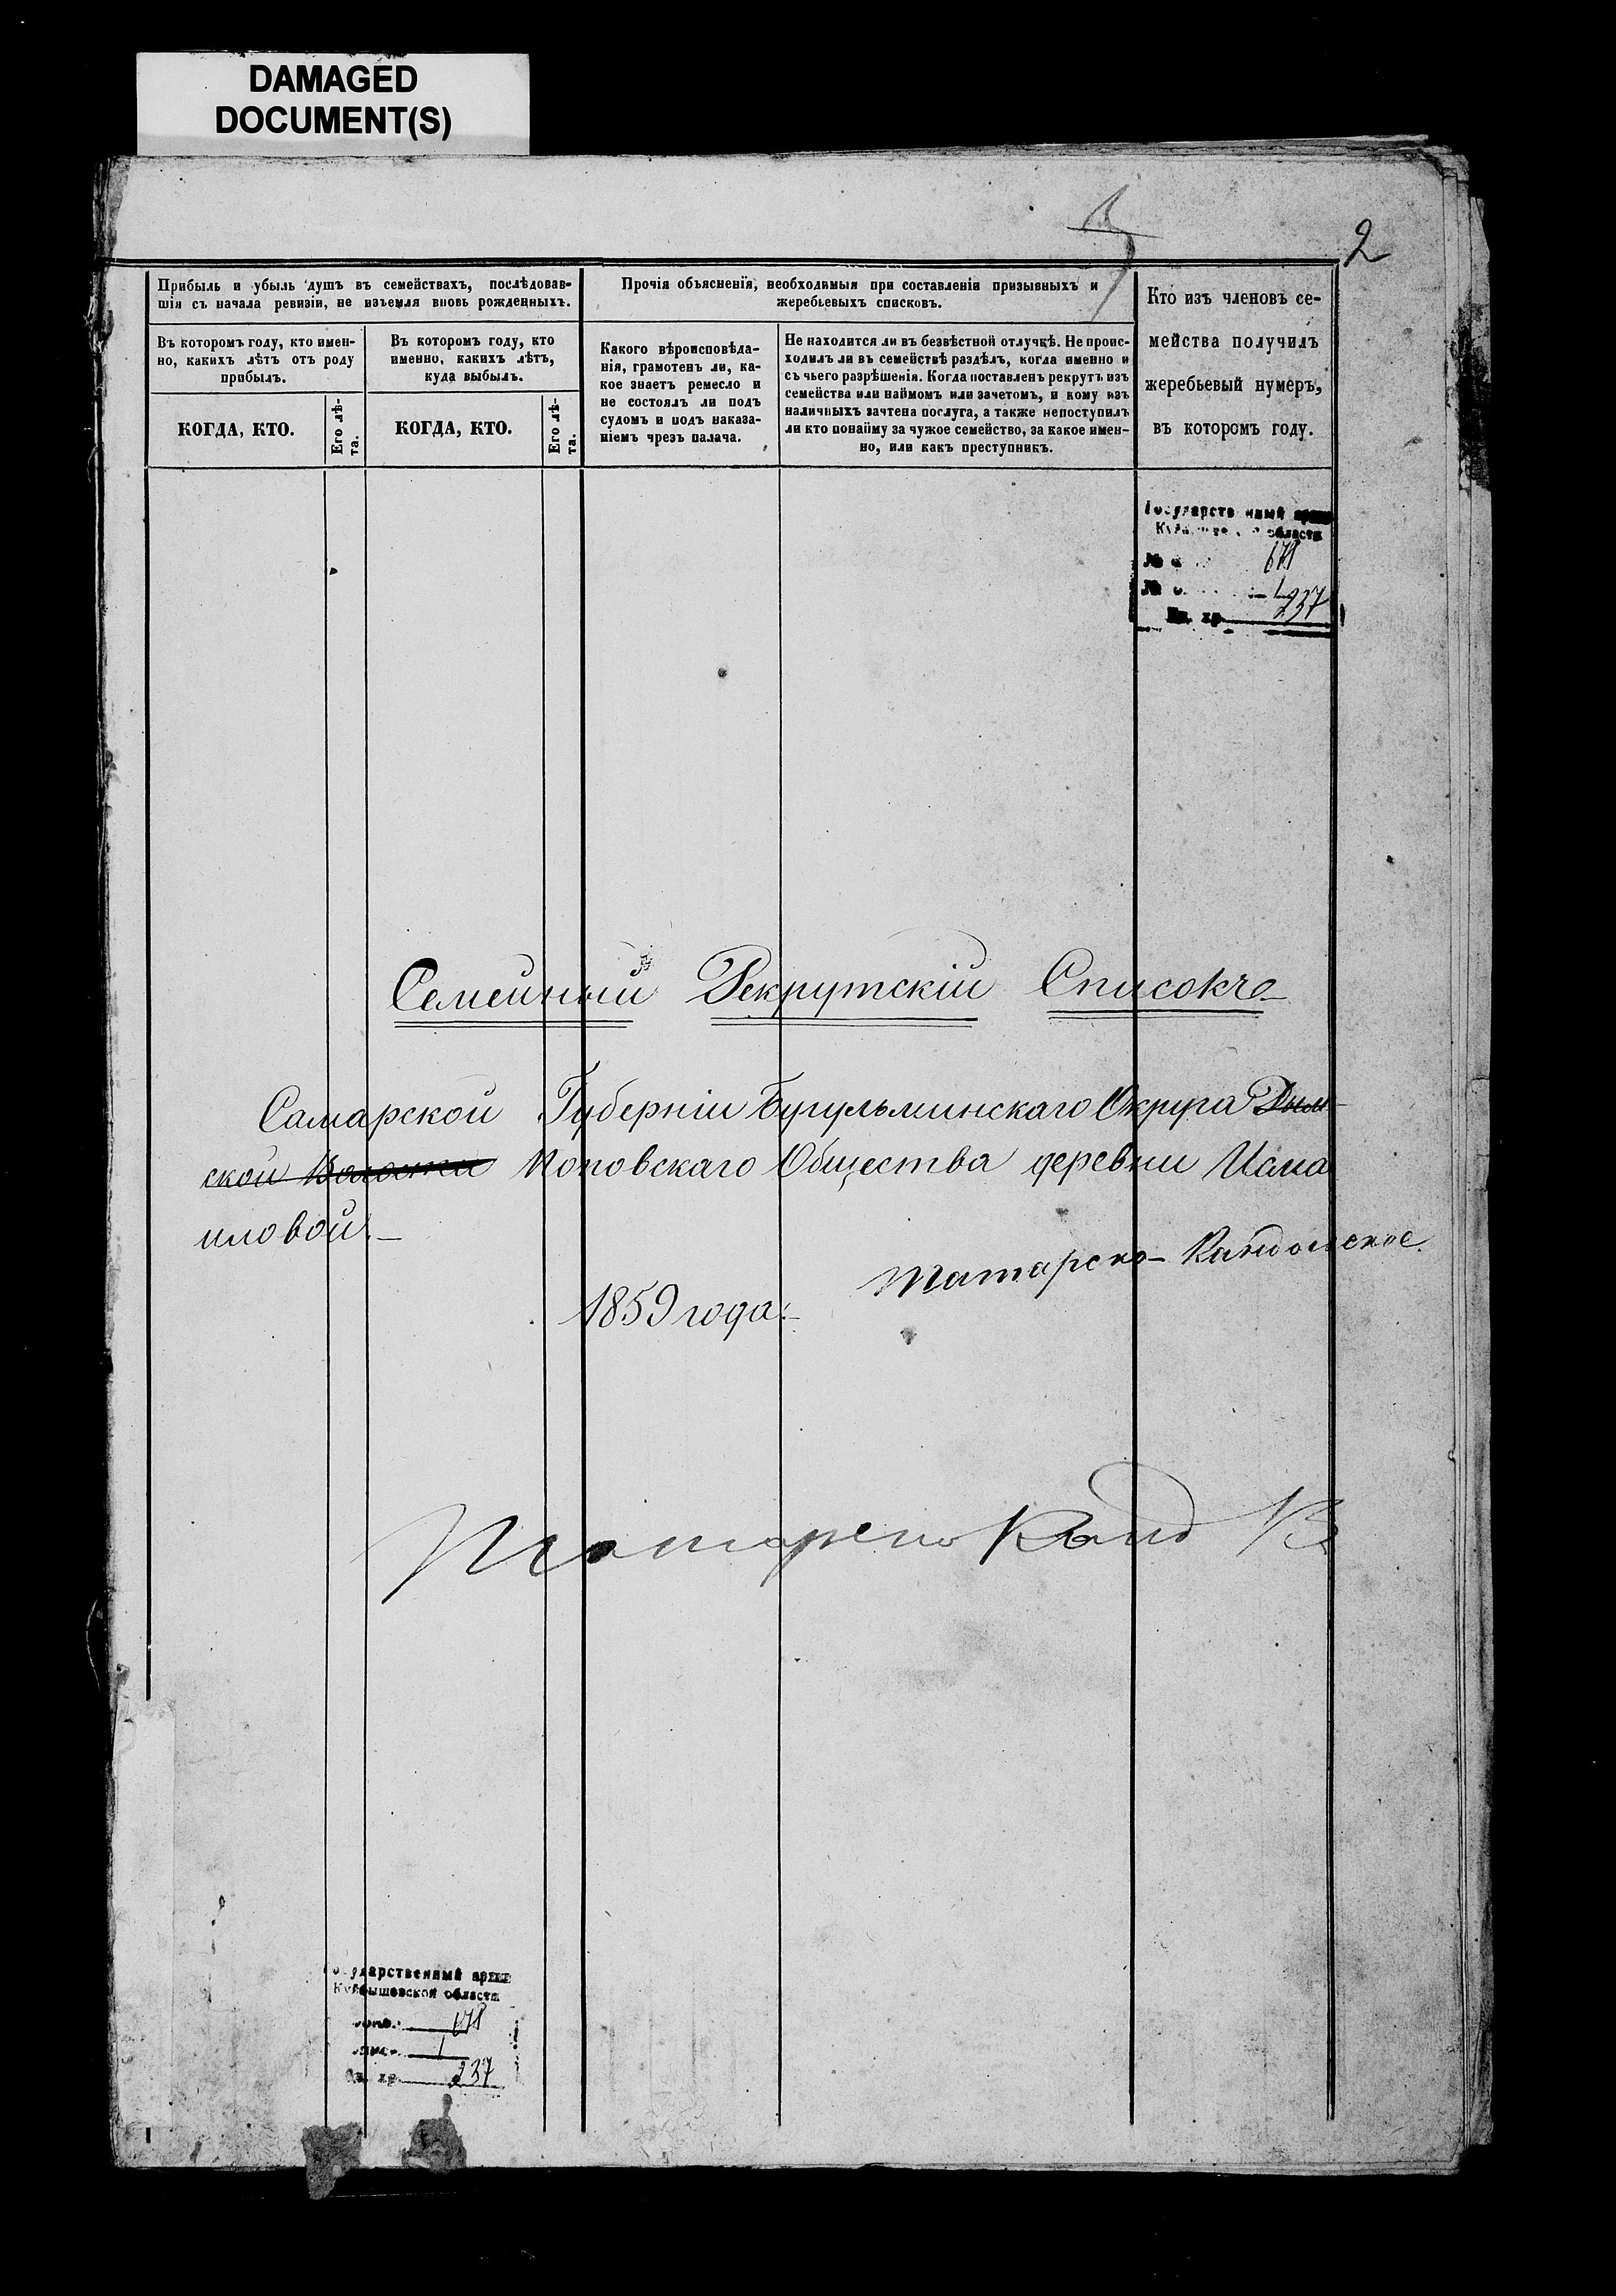 DAMAGED
DOCUMENT(S)
2
Прибыль и убыль душъ въ семействахъ, послѣдовав-
шія съ начала ревизіи, не изъемля вновь рожденныхъ.
Въ которомъ году, кто имен-
но, какихъ лѣтъ отъ роду
прибылъ.
КОГДА, КТО.
Его лѣ-
та.
Въ которомъ году, кто
именно, какихъ лѣтъ,
куда выбылъ.
КОГДА, КТО.
Его лѣ-
та.
Прочія объясненія, необходимыя при составленіи призывныхъ и
жеребьевыхъ списковъ.
Какого вѣроисповѣда-
нія, грамотенъ ли, ка-
кое знаетъ ремесло и
не состоялъ ли подъ
судомъ и подъ наказа-
ніемъ чрезъ палача.
Не находится ли въ безвѣстной отлучкѣ. Не проис-
ходилъ ли въ семействѣ раздѣлъ, когда именно и
съ чьего разрѣшенія. Когда поставленъ рекрутъ изъ
семейства или наймомъ или зачетомъ, и кому изъ
наличныхъ зачтена послуга, а также непоступилъ
ли кто понайму за чужое семейство, за какое имен-
но, или какъ преступникъ.
Кто изъ членовъ се-
мейства получилъ
жеребьевый нумеръ,
въ которомъ году.
Государственный архив
области
№ 671
№ 1
Ед. хр. 237
Семейный Рекрутскій Списокъ
Самарской Губерніи Бугульминскаго Округа Дым-
ской Волости Поповскаго Общества деревни Исма
иловой.
Татарско-Кандызское
1859 года:
Татарско Канд В
Государственный архив
Куйбышевской области
671
1
Ед. хр. 237